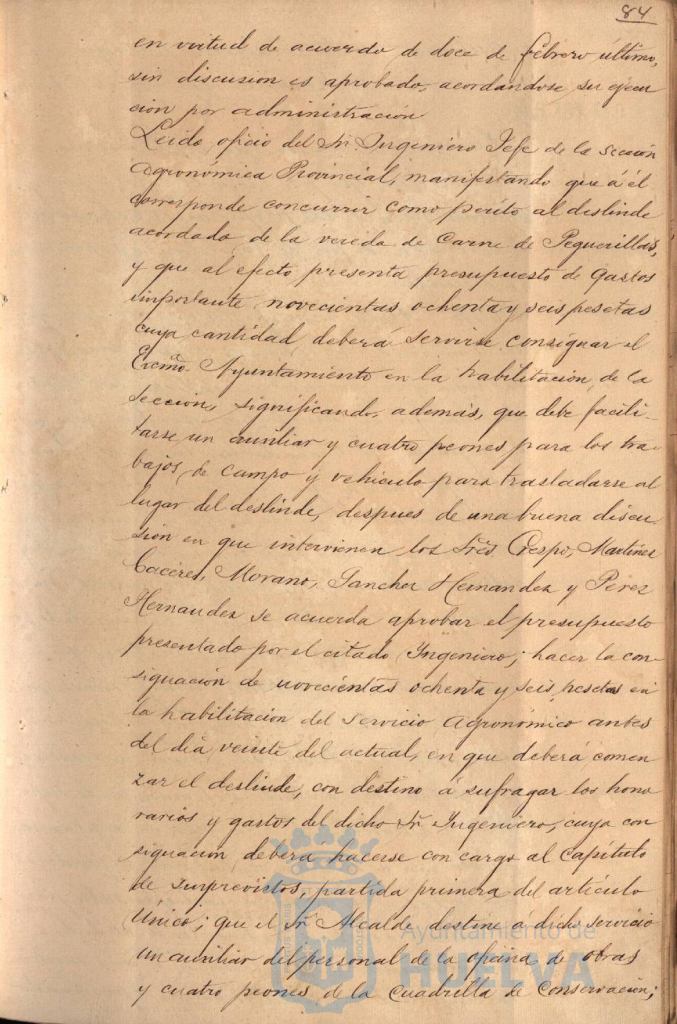 84
en virtud de acuerdo de doce de febrero último,
sin discusion es aprobado, acordandose su ejecu
cion por administración
Leido oficio del Sr. Ingeniero Jefe de la sección
Agronómica Provincial, manifestando que á él
corresponde concurrir como perito al deslinde
acordado de la vereda de Carne de Peguerillas,
y que al efecto presenta presupuesto de gastos
importante novecientas ochenta y seis pesetas
cuya cantidad deberá servirse consignar el
Excmo. Ayuntamiento en la habilitacion de la
Sección, significando, además, que debe facili-
tarse un auxiliar y cuatro peones para los tra-
bajos de campo y vehiculo para trasladarse al
lugar del deslinde, despues de una buena discu-
sión en que intervienen los Sres. Crespo, Martinez
Caceres, Morano, Sanchez Hernandez y Perez
Hernandez se acuerda aprobar el presupuesto
presentado por el citado Ingeniero; hacer la con-
signación de novecientas ochenta y seis pesetas en
la habilitacion del Servicio Agronómico antes
del dia veinte del actual, en que deberá comen
zar el deslinde, con destino á sufragar los hono
rarios y gastos del dicho Sr. Ingeniero, cuya con
signacion deberá hacerse con cargo al Capitulo
de Imprevistos, partida primera del articulo
único; que el Sr. Alcalde destine a dicho servicio
un auxiliar del personal de la oficina de obras
y cuatro peones de la Cuadrilla de Conservacion;
Ayuntamiento de
HUELVA